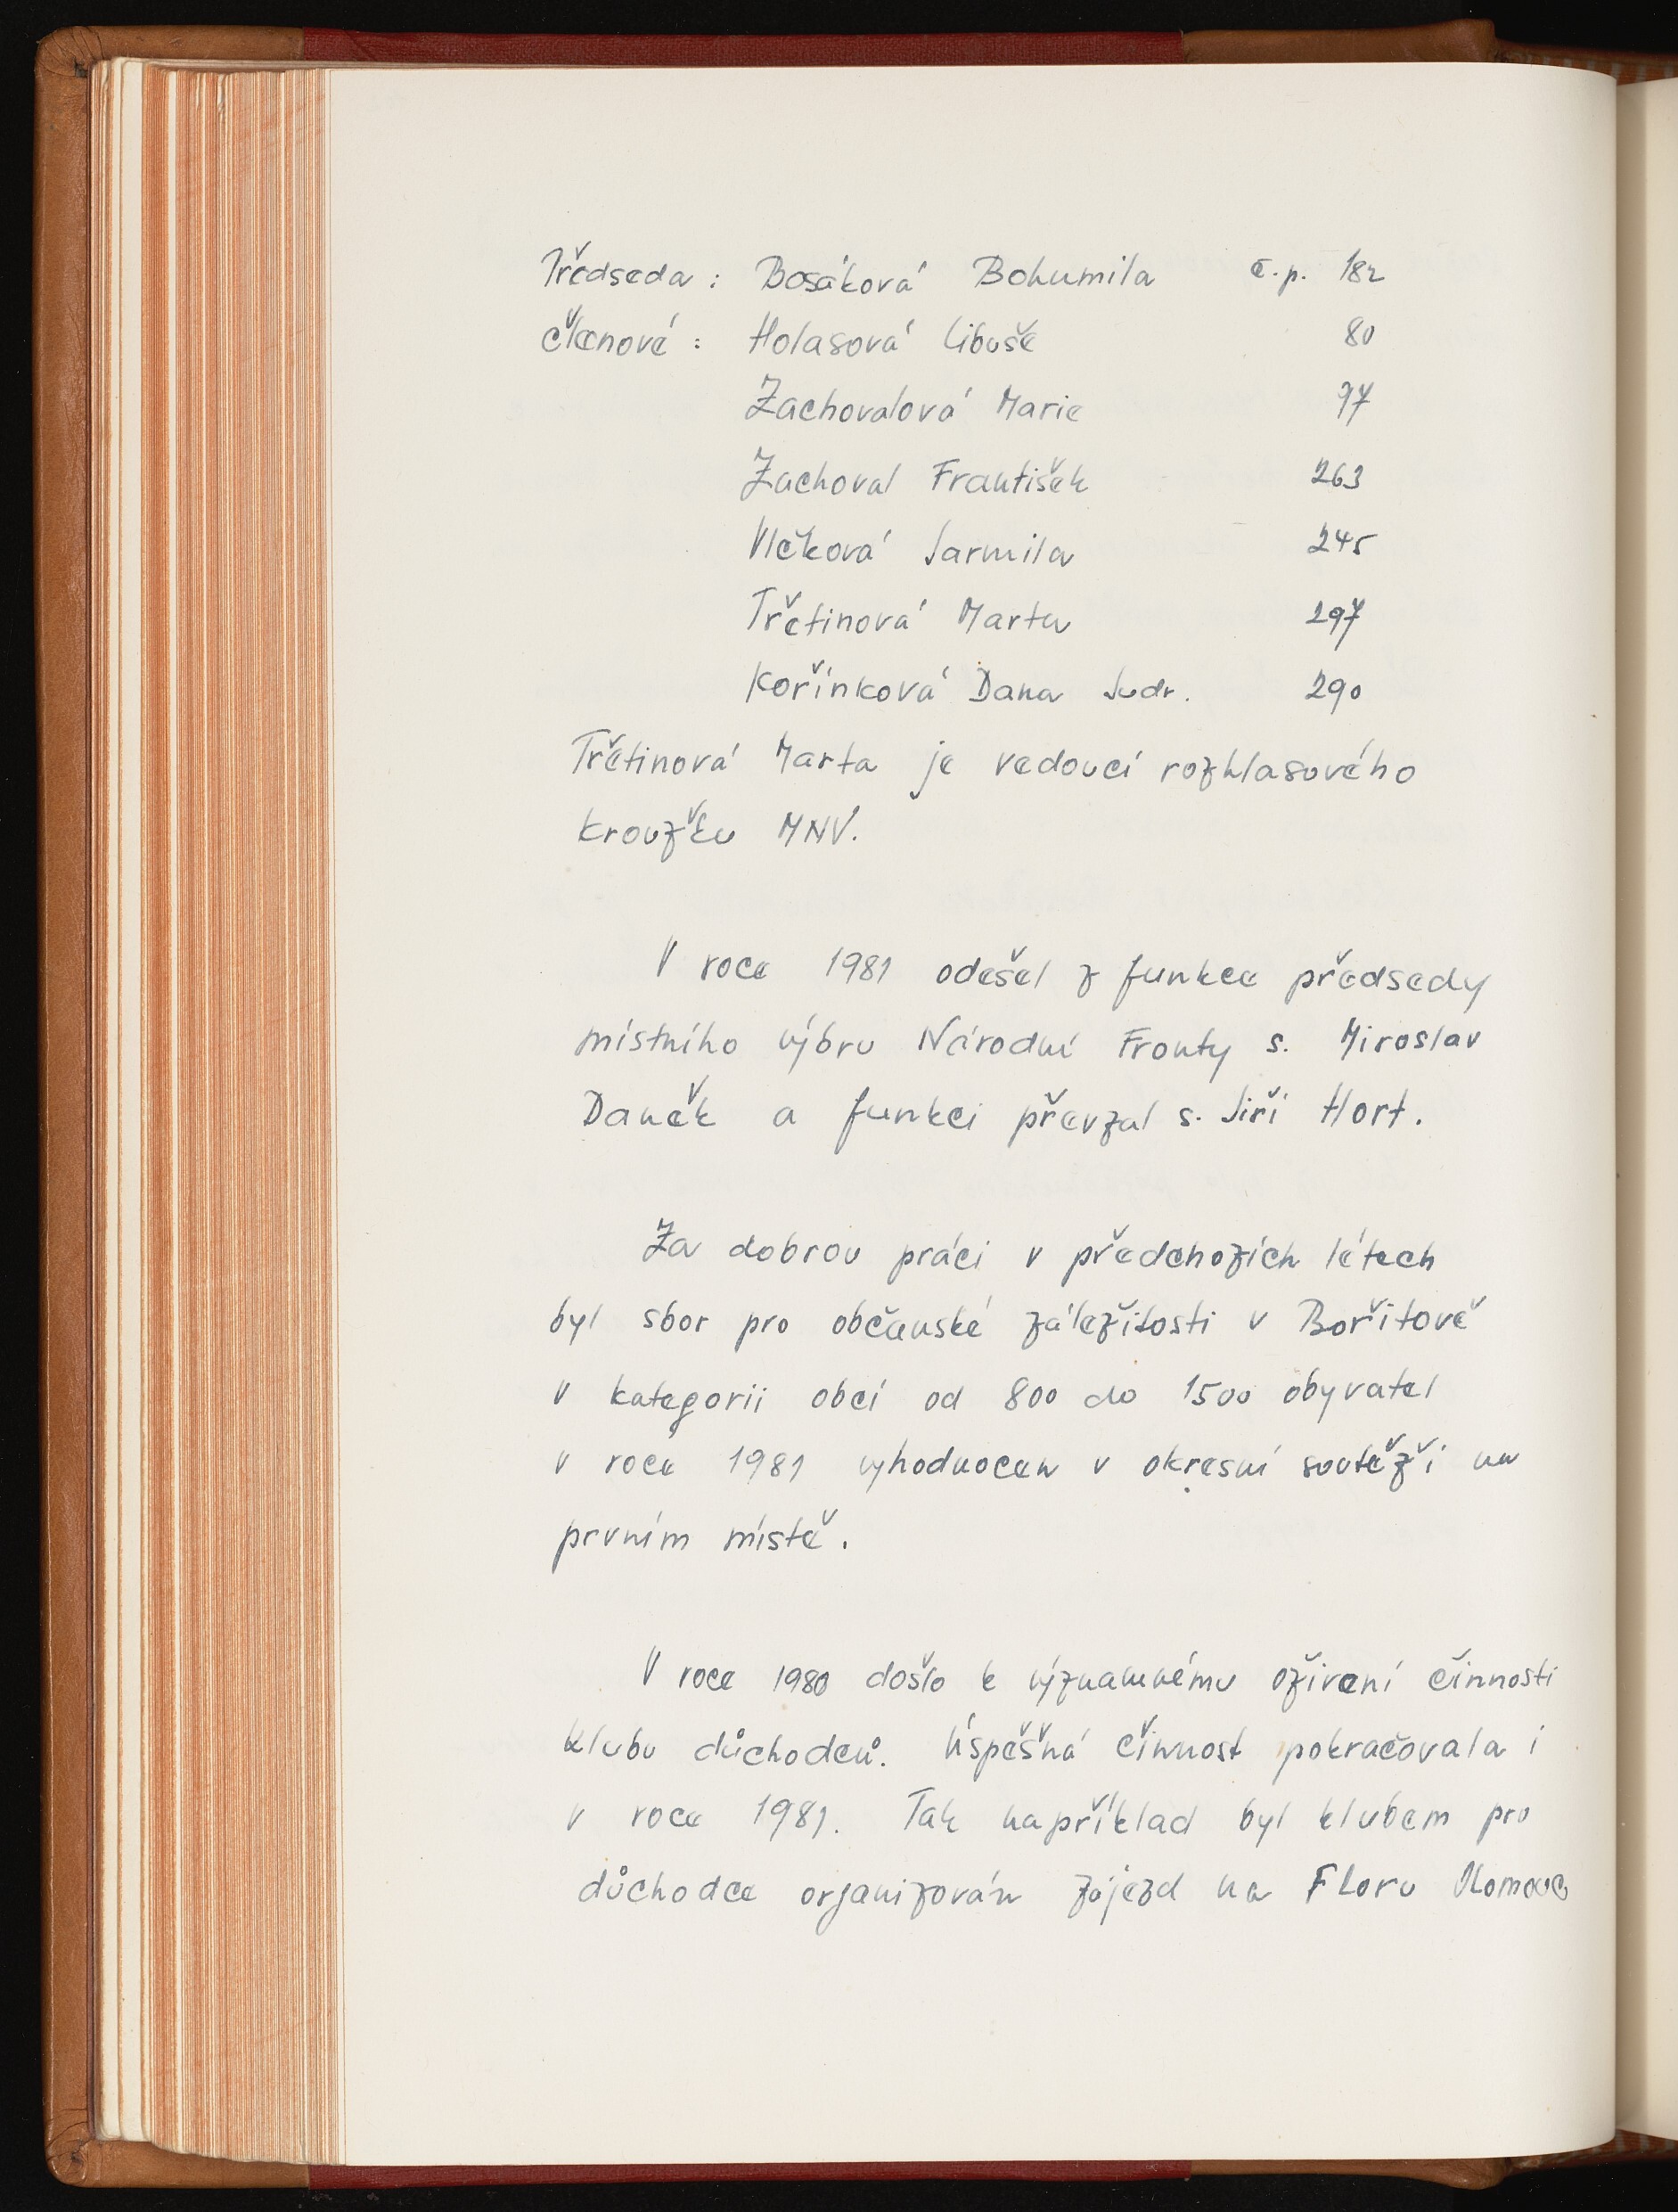 Předseda : Bosáková Bohumila č.p. 182
členové : Holasová Libuše 80
Zachovalová Marie 97
Zachoval František 263
Vlčková Jarmila 245
Třetinová Marta 297
Kořínková Dana Judr. 290
Třetinová Marta je vedoucí rozhlasového
kroužku MNV.
V roce 1981 odešel z funkce předsedy
místního výbru Národní Fronty s. Miroslav
Daněk a funkci převzal s. Jiří Hort.
Za dobrou práci v předchozích létech
byl sbor pro občanské záležitosti v Bořitově
v kategorii obcí od 800 do 1500 obyvatel
v roce 1981 vyhodnocen v okresní soutěži na
prvním místě.
V roce 1980 došlo k významnému oživení činnosti
klubu důchodců. Úspěšná činnost pokračovala i
v roce 1981. Tak například byl klubem pro
důchodce organizován zájezd na Floru Olomouc